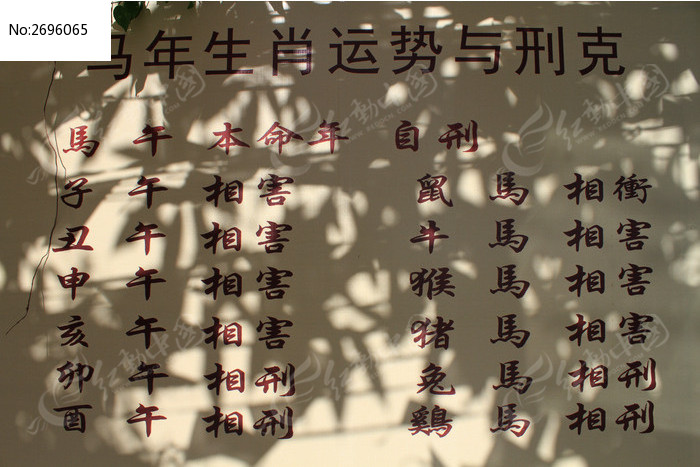 No:2696065
马年生肖运势与刑克
馬 午 本命年 自刑
子 午 相害 鼠 馬 相衝
丑 午 相害 牛 馬 相害
申 午 相害 猴 馬 相害
亥 午 相害 猪 馬 相害
卯 午 相刑 兔 馬 相刑
酉 午 相刑 鷄 馬 相刑